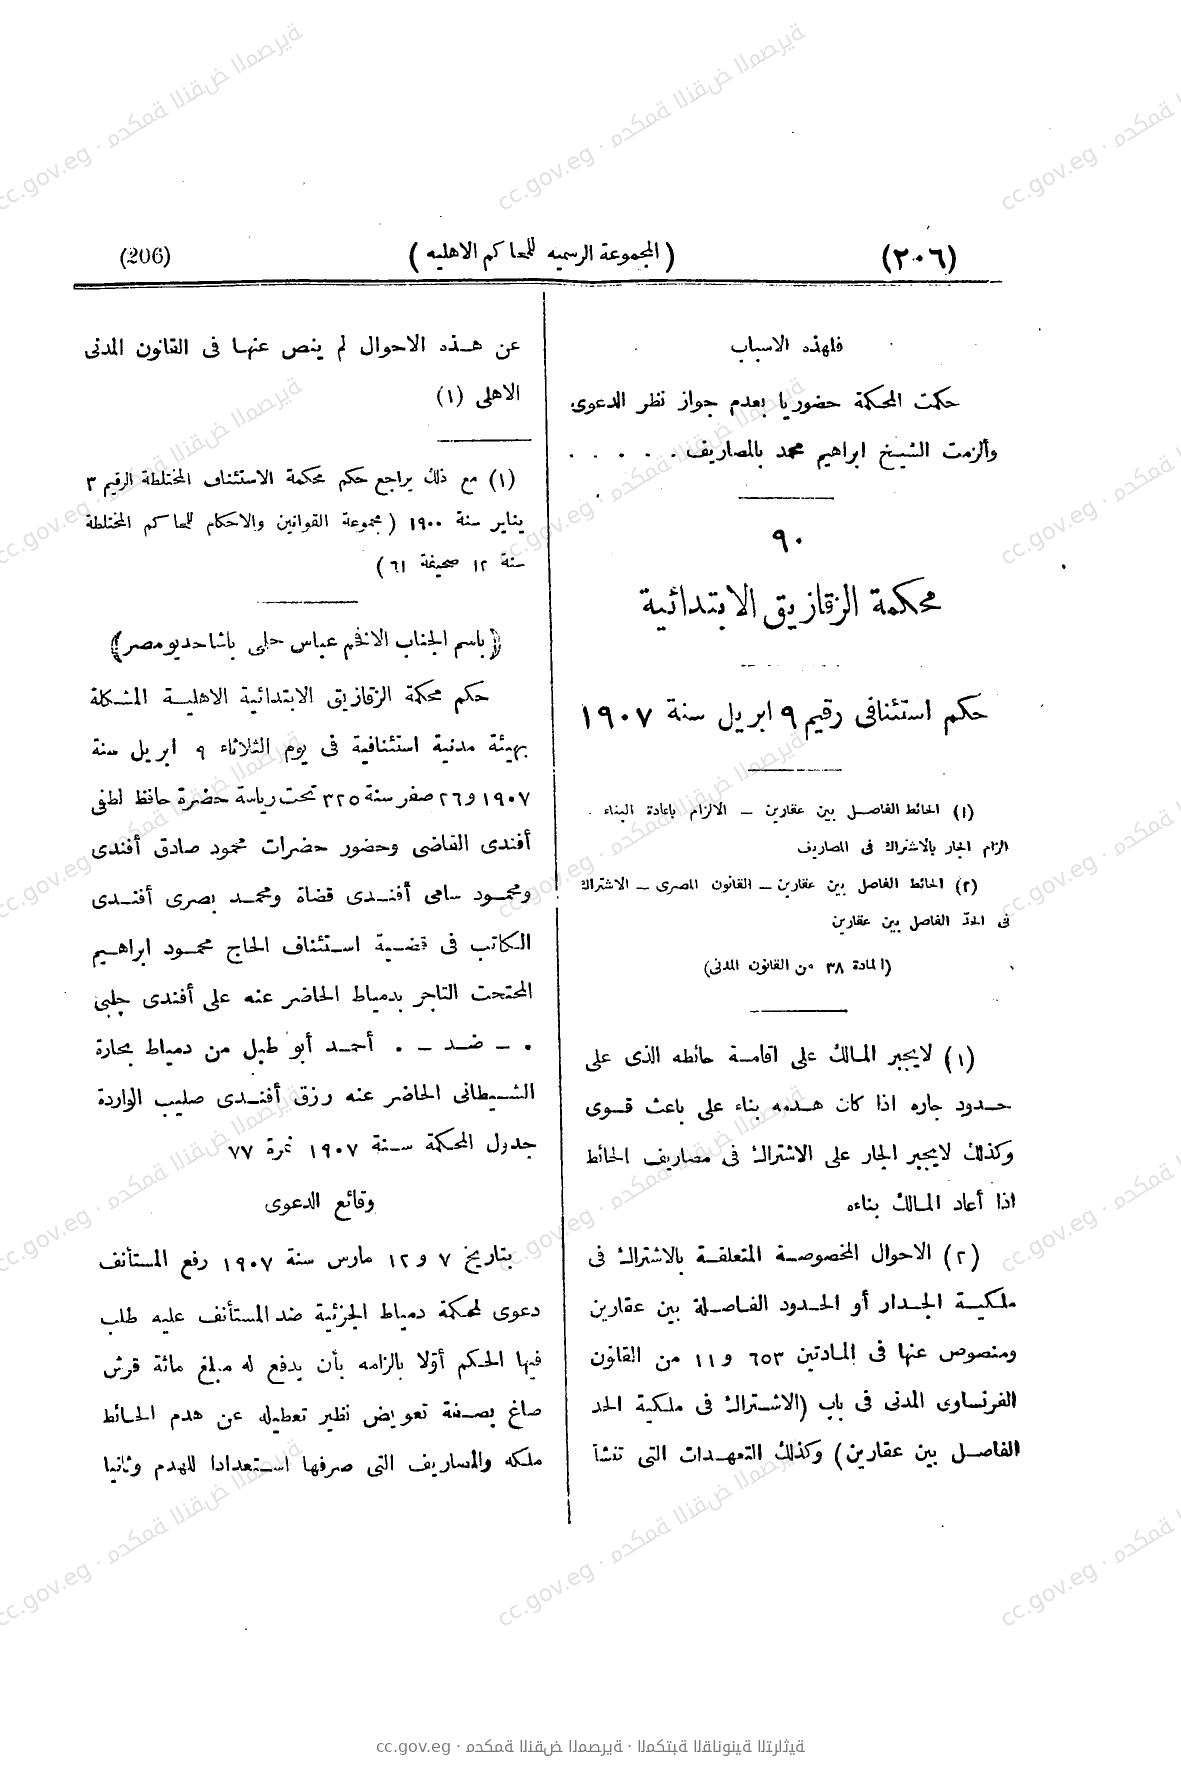 (٢٠٦) (المجموعة الرسميه للمحاكم الاهليه) (206)
فلهذه الاسباب
حكمت المحكمة حضوريا بعدم جواز نظر الدعوى
وألزمت الشيخ ابراهيم محمد بالمصاريف . . . . .
٩٠
محكمة الزقازيق الابتدائية
حكم استئنافى رقيم ٩ ابريل سنة ١٩٠٧
(١) الحائط الفاصل بين عقارين – الالزام باعادة البناء .
الزام الجار بالاشتراك فى المصاريف
(٢) الحائط الفاصل بين عقارين – القانون المصرى – الاشتراك
فى الحد الفاصل بين عقارين
(المادة ٣٨ من القانون المدنى)
(١) لايجبر المالك على اقامة حائطه الذى على
حدود جاره اذا كان هدمه بناء على باعث قوى
وكذلك لايجبر الجار على الاشتراك فى مصاريف الحائط
اذا أعاد المالك بناءه
(٢) الاحوال المخصوصة المتعلقة بالاشتراك فى
ملكية الجدار أو الحدود الفاصلة بين عقارين
ومنصوص عنها فى المادتين ٦٥٣ و١١ من القانون
الفرنساوى المدنى فى باب (الاشتراك فى ملكية الحد
الفاصل بين عقارين) وكذلك التعهدات التى تنشأ
عن هذه الاحوال لم ينص عنها فى القانون المدنى
الاهلى (١)
(١) مع ذلك يراجع حكم محكمة الاستئناف المختلطة الرقيم ٣
يناير سنة ١٩٠٠ (مجموعة القوانين والاحكام للمحاكم المختلطة
سنة ١٢ صحيفة ٦١)
(باسم الجناب الافخم عباس حلمى باشا خديو مصر)
حكم محكمة الزقازيق الابتدائية الاهلية المشكلة
بهيئة مدنية استئنافية فى يوم الثلاثاء ٩ ابريل سنة
١٩٠٧ و٢٦ صفر سنة ٣٢٥ تحت رياسة حضرة حافظ لطفى
أفندى القاضى وحضور حضرات محمود صادق أفندى
ومحمود سامى أفندى قضاة ومحمد بصرى أفندى
الكاتب فى قضية استئناف الحاج محمود ابراهيم
المحتحت التاجر بدمياط الحاضر عنه على أفندى چلبى
. – ضد – . أحمد أبو طبل من دمياط بحارة
الشيطانى الحاضر عنه رزق أفندى صليب الواردة
جدول المحكمة سنة ١٩٠٧ نمرة ٧٧
وقائع الدعوى
بتاريخ ٧ و١٢ مارس سنة ١٩٠٧ رفع المستأنف
دعوى لمحكمة دمياط الجزئية ضد المستأنف عليه طلب
فيها الحكم أوّلا بالزامه بأن يدفع له مبلغ مائة قرش
صاغ بصفة تعويض نظير تعطيله عن هدم الحائط
ملكه والمصاريف التى صرفها استعدادا للهدم وثانيا
cc.gov.eg · محكمة النقض المصرية · المكتبة القانونية التراثية